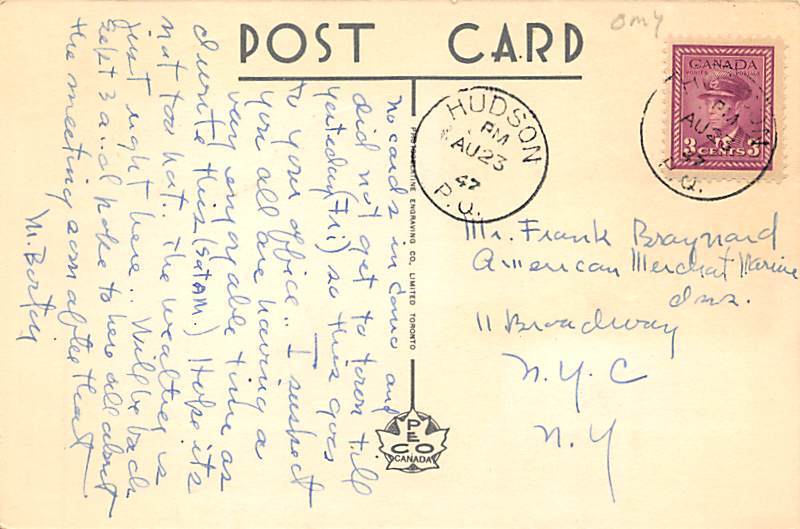 POST CARD
omy
CANADA
POSTES POSTAGE
3 CENTS 3
HUDSON
PM
AU 23
47
P.Q.
PM
AU 23
47
P.Q.
No cards in and
did not get to town till
yesterday (Fri) so this goes
to your office.. I suspect
you all are having a
very enjoyable time as
I write this (Sat AM.) Hope its
not too hot.. The weather is
just right here.. Will be back
Sept 3 and hope to hear all about
the meeting soon after that
M.
PHOTOGELATINE ENGRAVING CO., LIMITED TORONTO
PECO
CANADA
Mr. Frank Braynard
American Merchat Marine
Ins.
11 Broadway
N.Y.C
N.Y